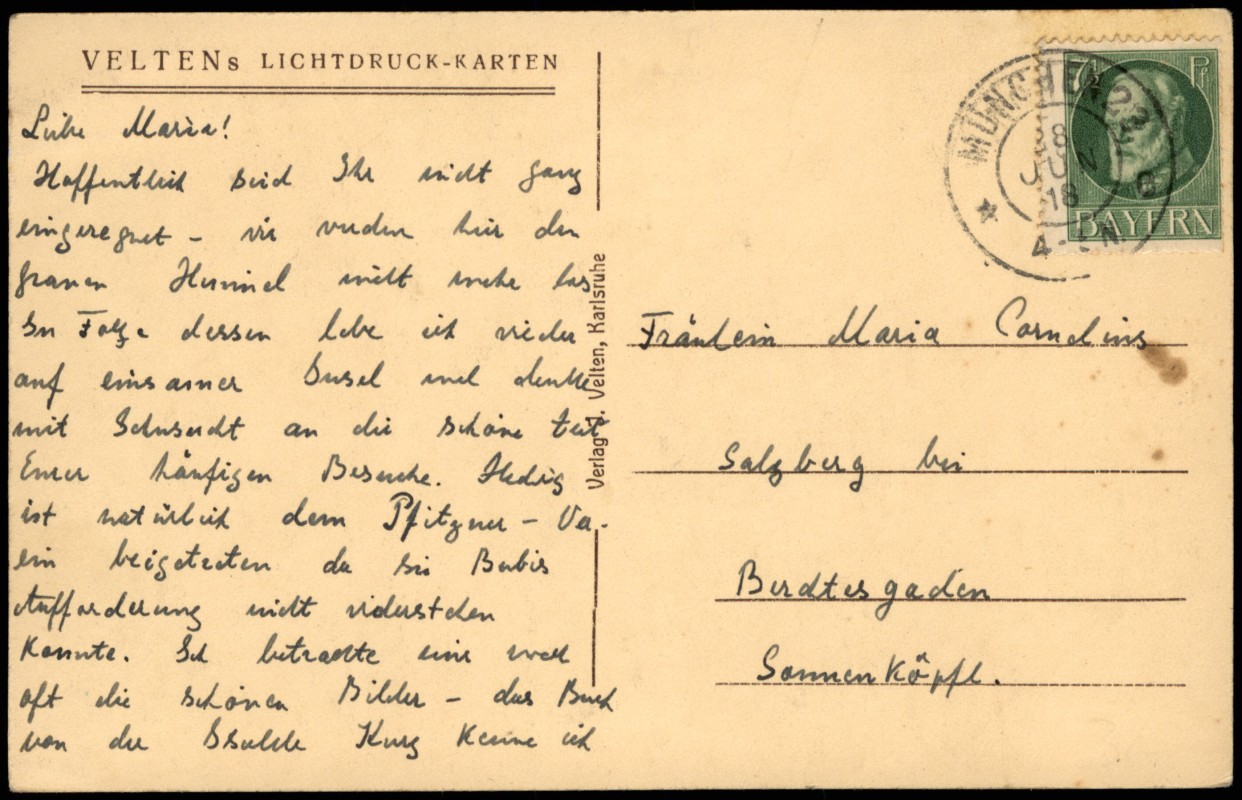 VELTENs LICHTDRUCK-KARTEN
Liebe Maria!
Hoffentlich seid Ihr nicht ganz
eingeregnet – wir werden hier den
grauen Himmel nicht mehr los
In Folge dessen lebe ich wieder
auf einsamer Insel und denke
mit Sehnsucht an die schöne Zeit
Eurer häufigen Besuche. Hedwig
ist natürlich dem Pfitzner – Ver-
ein beigetreten da sie Bubis
Aufforderung nicht widerstehen
konnte. Ich betrachte eure
oft die schönen Bilder – das Buch
von der Isolde Kurz kenne ich
Verlag J. Velten, Karlsruhe
MÜNCHEN
28
JUN
18
4-5 N.
7½ Pf
BAYERN
Fräulein Maria Cornelius
Salzberg bei
Berchtesgaden
Sonnenköpfl.